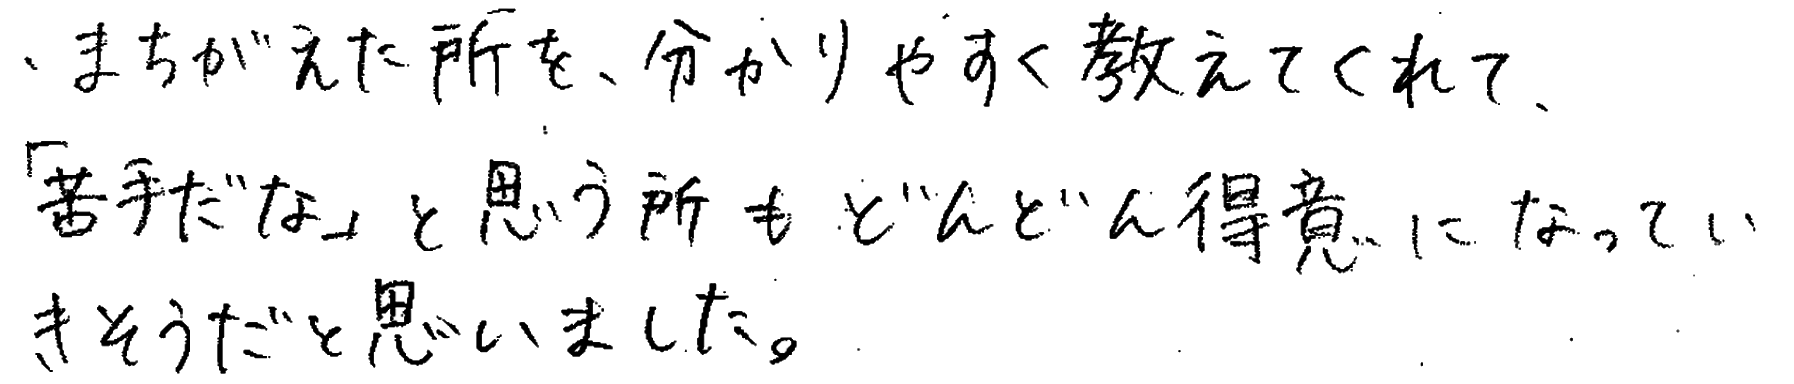 、まちがえた所を、分かりやすく教えてくれて、
「苦手だな」と思う所もどんどん得意になってい
きそうだと思いました。